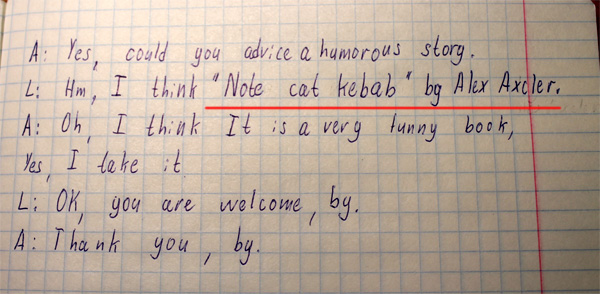 A: Yes, could you advice a humorous story.
L: Hm, I think "Note cat kebab" by Alex Axcler.
A: Oh, I think It is a very funny book,
Yes, I take it
L: OK, you are welcome, by.
A: Thank you, by.